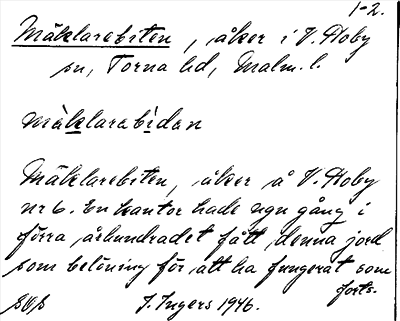 1-2.
Mäklarebiten, åker i V. Hoby
sn, Torna hd, Malm. l.
mäklarabidan
Mäklarebiten, åker å V. Hoby
nr 6. En kantor hade ngn gång i
förra århundradet fått denna jord
som belöning för att ha fungerat som
forts.
J. Ingers 1946.